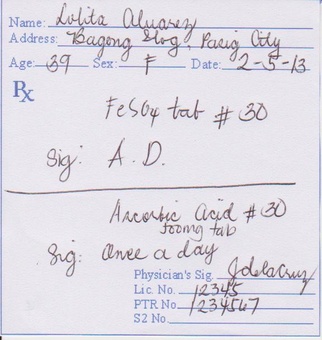 Name: Lolita Alvarez
Address: Bagong Ilog, Pasig City
Age: 39 Sex: F Date: 2-5-13
Rx
FeSO4 tab # 30
Sig: A. D.
Ascorbic Acid # 30
500mg tab
Sig: Once a day
Physician's Sig. Jdelacruz
Lic. No. 12345
PTR No. 1234567
S2 No.